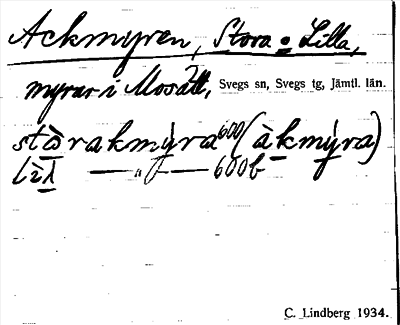 Ackmyren, Stora o Lilla,
myrar i Mosätt, Svegs sn, Svegs tg, Jämtl. län.
stòrakmỳra 600 (àkmýra)
lìl —〃— 600b
C. Lindberg 1934.